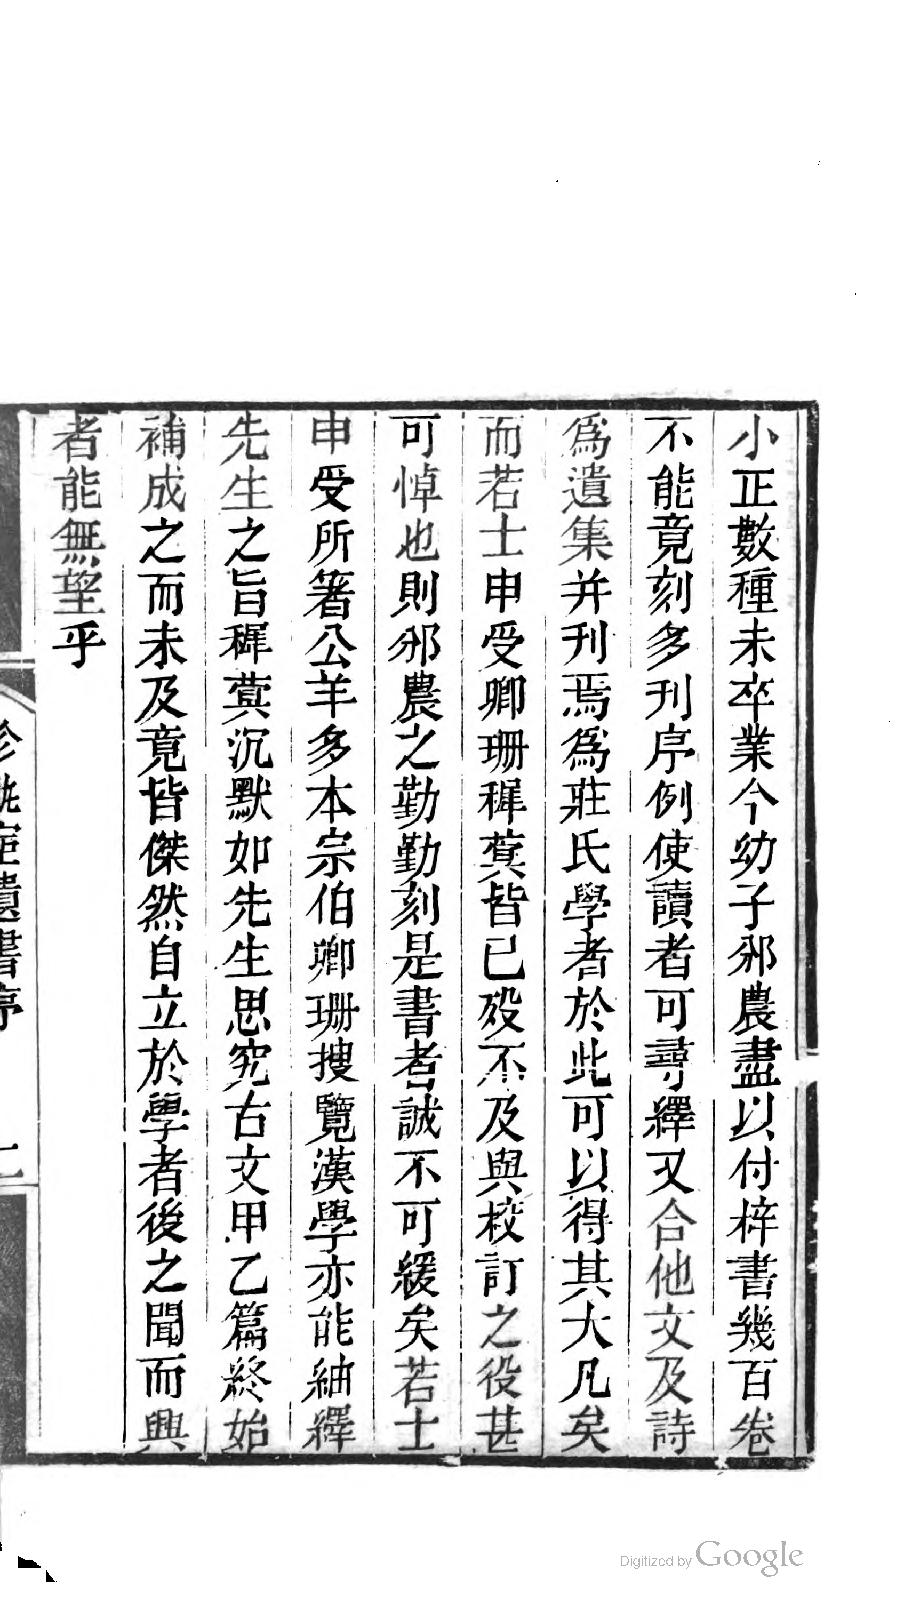 小正數種未卒業今幼子邠農盡以付梓書幾百卷
不能竟刻多刊序例使讀者可尋繹又合他文及詩
爲遺集并刊焉爲莊氏學者於此可以得其大凡矣
而若士申受卿珊穉蓂皆已歿不及與校訂之役甚
可悼也則邠農之勤勤刻是書者誠不可緩矣若士
申受所箸公羊多本宗伯卿珊搜覽漢學亦能紬繹
先生之旨穉蓂沉默如先生思究古文甲乙篇終始
補成之而未及竟皆傑然自立於學者後之聞而興
者能無望乎
遺書序
Digitized by Google